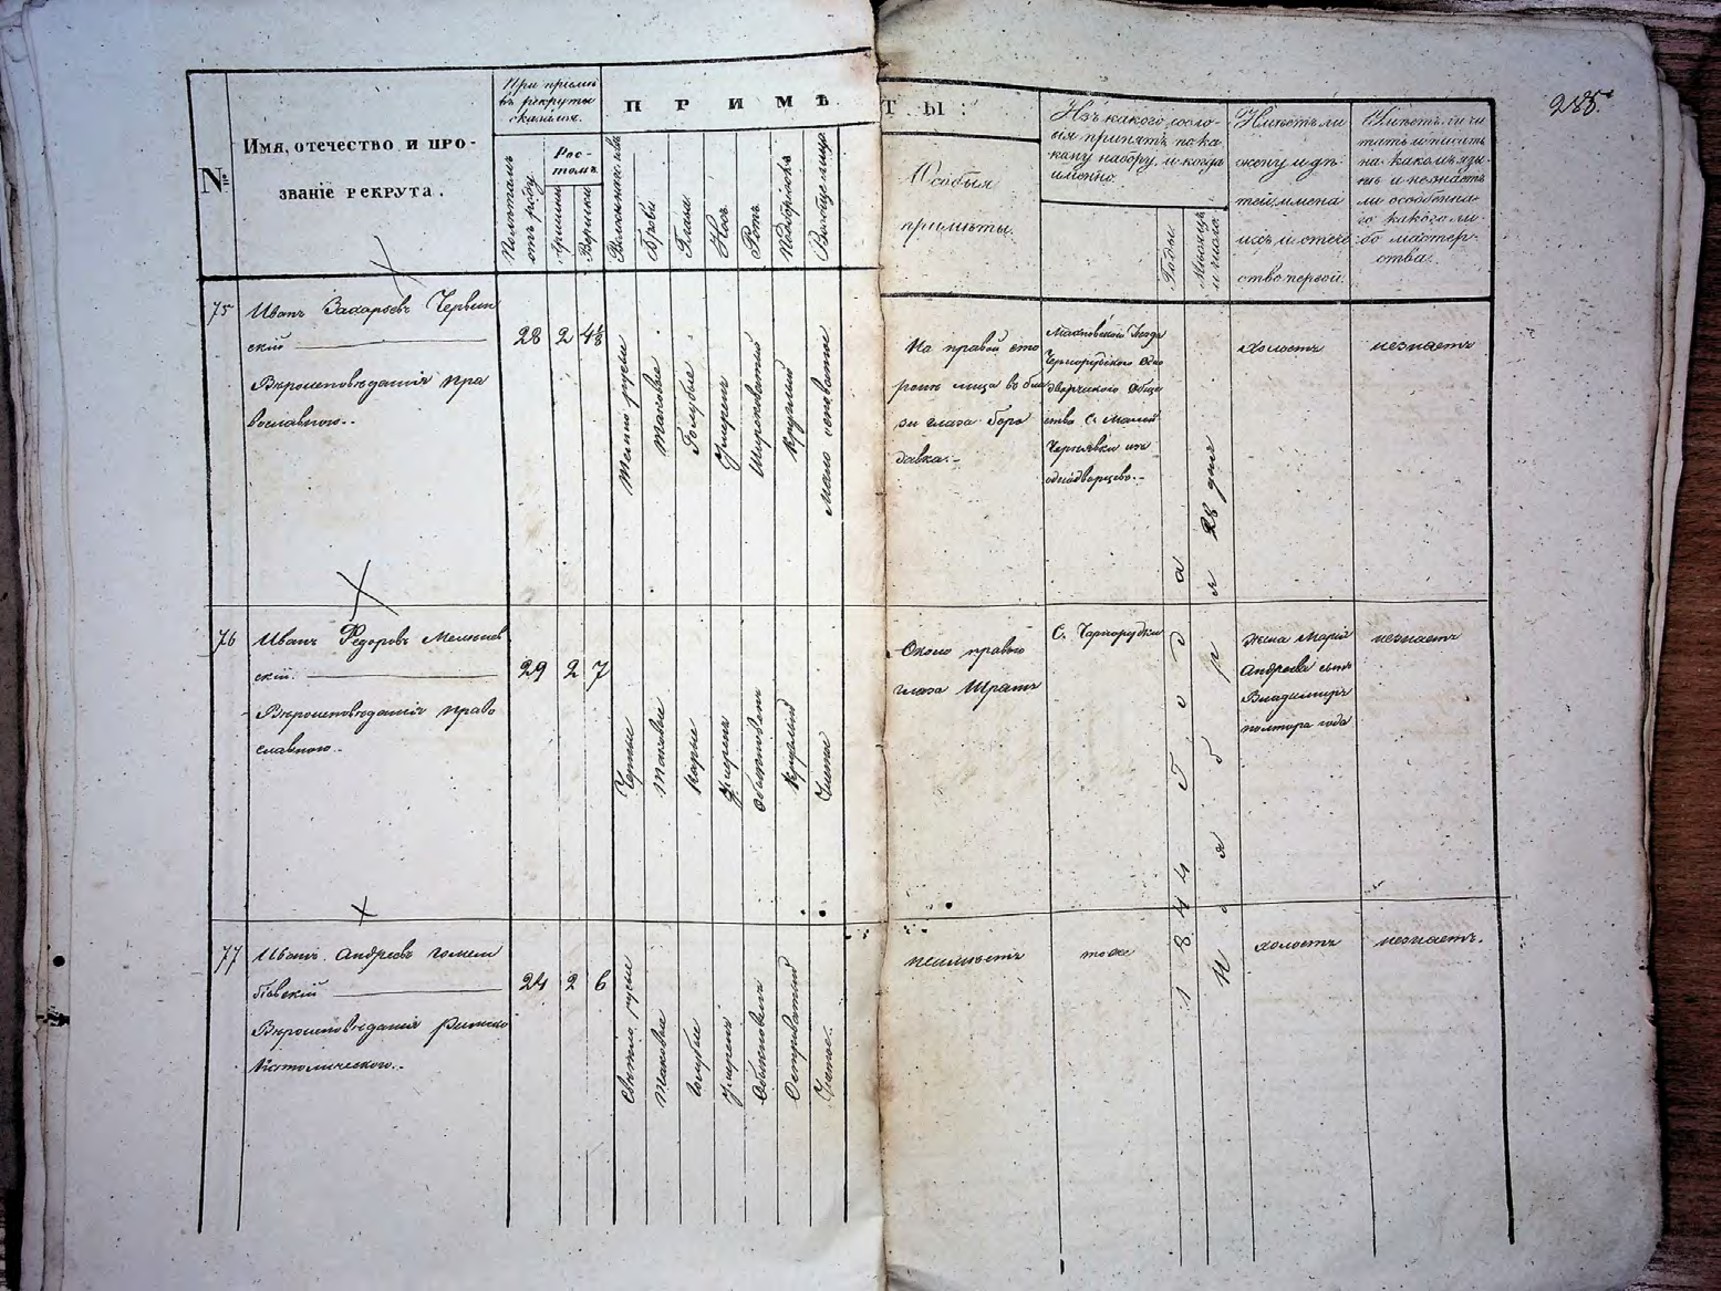 285.
№
Имя, отечество и про-
званіе рекрута.
При пріемѣ
въ рекруты
оказался.
Рос-
томъ.
Аршины
Вершки
П Р И М Ѣ Т Ы :
Брови
Глаза
Носъ
Ротъ
Подбородокъ
Вообще лицо
Особыя
примѣты.
Изъ какого сосло-
вія принятъ по ка-
кому набору и когда
именно.
Годы.
Мѣсяцъ
и число
Имѣетъ ли
жену и дѣ-
тей, имена
ихъ и отече-
ство первой.
Имѣетъ ли чи
тать и писать
на какомъ язы-
кѣ и незнаетъ
ли особенна-
го какого ли-
бо мастер-
ства.
75
Иванъ Захаровъ Червин
скій
Вѣроисповѣданія пра
вославного..
28 2 4⅛
Темно русы
Таковые
Голубые
Умеренъ
Широковатый
Круглый
Мало
На правой сто
роне лица въ бли
зи глаза боро
давка.-
Махновского Уезда
Чернорудского Одно
дворческого Обще
ства С. Малой
Чернявки изъ
однодворцевъ.-
холостъ
незнаетъ
76
Иванъ Федоровъ
скій.
Вѣроисповѣданія право
славного..
29 2 7
Черны
Таковые
Карые
Умеренъ
Обыкновенъ
Круглый
Чистое
Около правого
глаза Шрамъ
С. Чернорудки
Жена Марія
Андреева сынъ
Владимиръ
полтора года
незнаетъ
77
Иванъ Андреевъ
Вѣроисповѣданія Римско
Католического..
24 2 6
Свѣтло русы
Таковые
Голубы
Умеренъ
Обыкновенъ
Островатый
Чистое.
неимѣетъ
тоже
1844 Года
Ноября 28 дня
холостъ
незнаетъ.